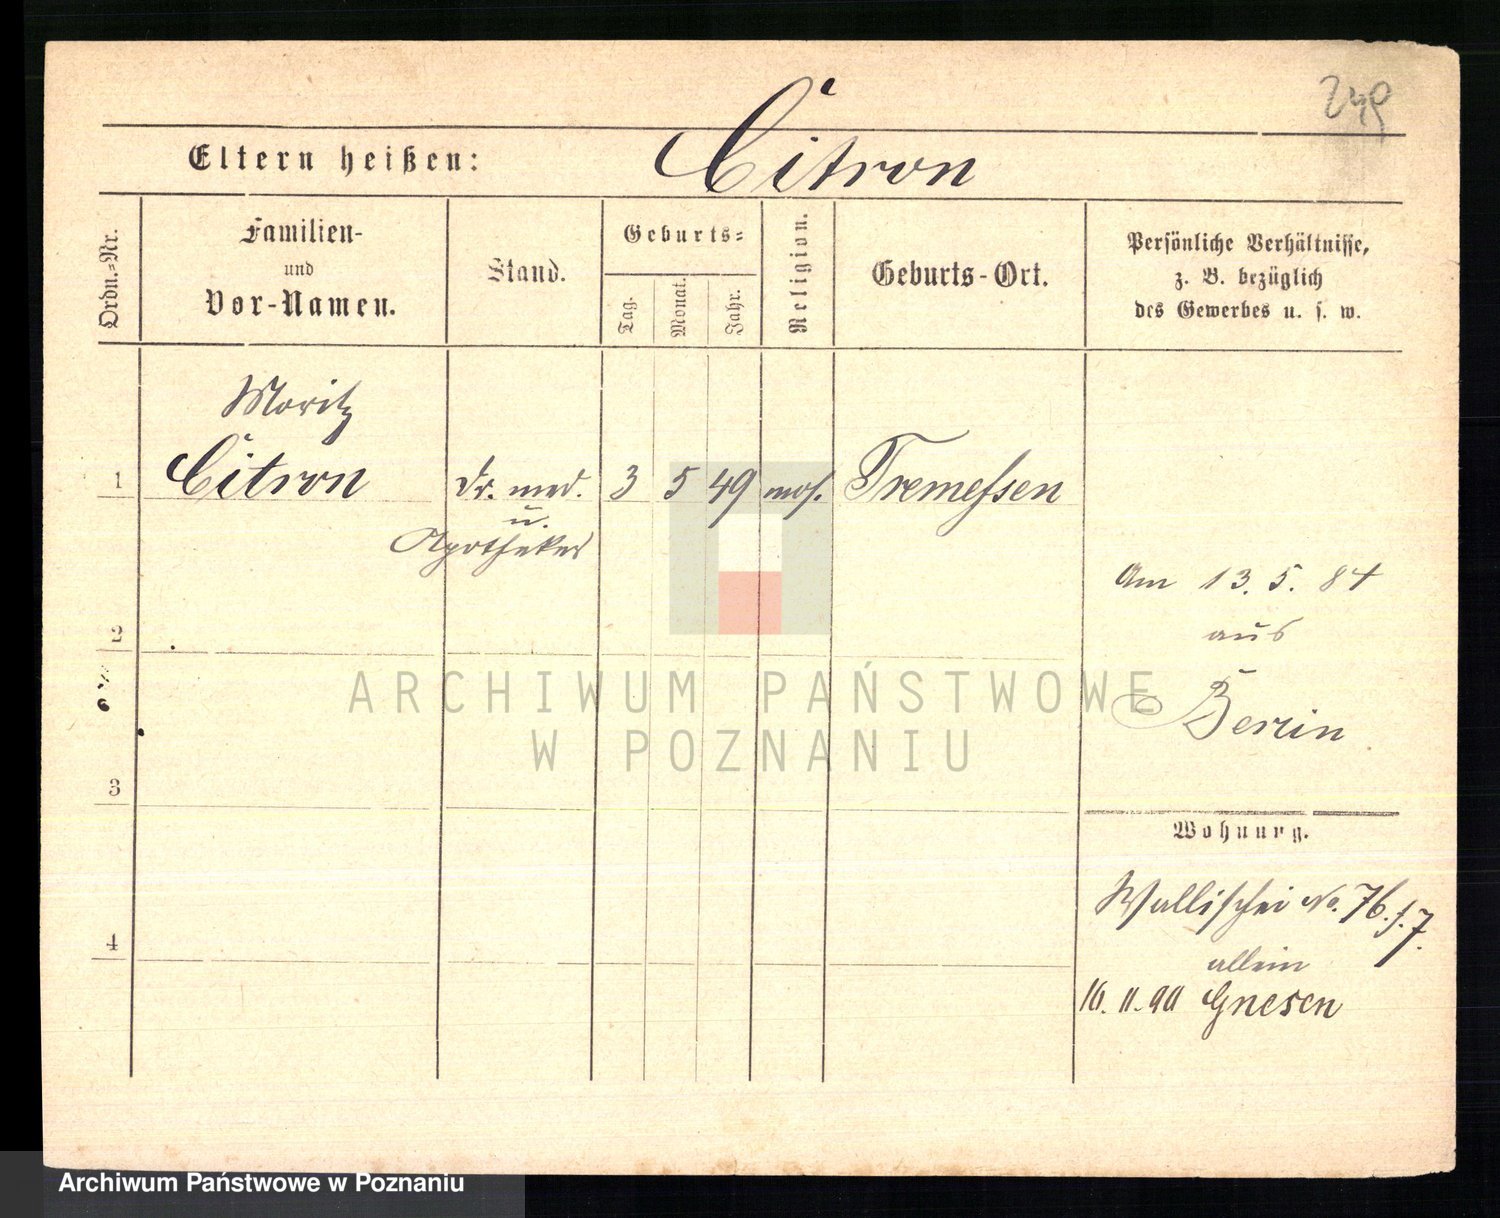 249
Eltern heißen: Citron
Ordn.-Nr.
Familien-
und
Vor-Namen.
Stand.
Geburts-
Tag.
Monat.
Jahr.
Religion.
Geburts-Ort.
Persönliche Verhältnisse,
z. B. bezüglich
des Gewerbes u. s. w.
Moritz
1 Citron Dr. med. 3 5 49 mos. Tremessen
u.
Apotheker
Am 13. 5. 84
2
aus
Berlin
3
Wohnung.
Wallischei No. 76. f. 7.
4
allein
16. 11. 90 Gnesen
ARCHIWUM PAŃSTWOWE
W POZNANIU
Archiwum Państwowe w Poznaniu